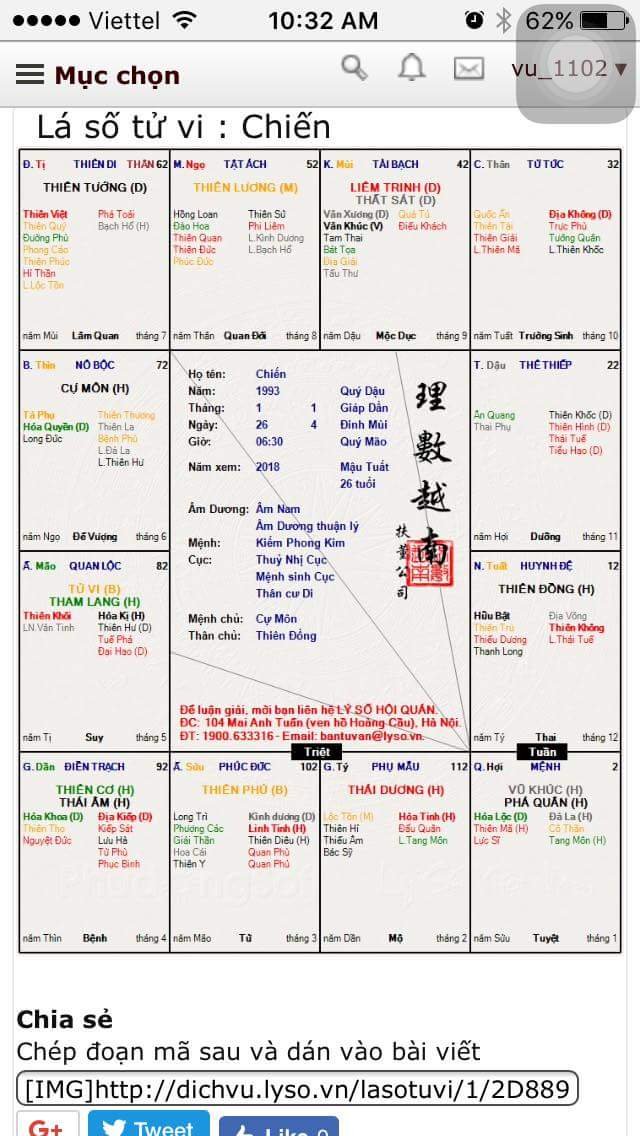 Viettel 10:32 AM 62%
Mục chọn vu_1102 ▼
Lá số tử vi : Chiến
Đ. Tị THIÊN DI THÂN 62
THIÊN TƯỚNG (D)
Thiên Việt Phá Toái
Thiên Quý Bạch Hổ (H)
Đường Phù
Phong Cáo
Thiên Phúc
Hỉ Thần
L.Lộc Tồn
năm Mùi Lâm Quan tháng 7
M. Ngọ TẬT ÁCH 52
THIÊN LƯƠNG (M)
Hồng Loan Thiên Sứ
Đào Hoa Phi Liêm
Thiên Quan L.Kình Dương
Thiên Đức L.Bạch Hổ
Phúc Đức
năm Thân Quan Đới tháng 8
K. Mùi TÀI BẠCH 42
LIÊM TRINH (D)
THẤT SÁT (D)
Văn Xương (D) Quả Tú
Văn Khúc (V) Điếu Khách
Tam Thai
Bát Tọa
Địa Giải
Tấu Thư
năm Dậu Mộc Dục tháng 9
C. Thân TỬ TỨC 32
Quốc Ấn Địa Không (D)
Thiên Tài Trực Phù
Thiên Giải Tướng Quân
L.Thiên Mã L.Thiên Khốc
năm Tuất Trường Sinh tháng 10
B. Thìn NÔ BỘC 72
CỰ MÔN (H)
Tả Phụ Thiên Thương
Hóa Quyền (D) Thiên La
Long Đức Bệnh Phù
L.Đà La
L.Thiên Hư
năm Ngọ Đế Vượng tháng 6
Họ tên: Chiến
Năm: 1993 Quý Dậu
Tháng: 1 1 Giáp Dần
Ngày: 26 4 Đinh Mùi
Giờ: 06:30 Quý Mão
Năm xem: 2018 Mậu Tuất
26 tuổi
Âm Dương: Âm Nam
Âm Dương thuận lý
Mệnh: Kiếm Phong Kim
Cục: Thuỷ Nhị Cục
Mệnh sinh Cục
Thân cư Di
Mệnh chủ: Cự Môn
Thân chủ: Thiên Đồng
理
數
越
南
扶
董
公
司
Để luận giải, mời bạn liên hệ LÝ SỐ HỘI QUÁN.
ĐC: 104 Mai Anh Tuấn (ven hồ Hoàng Cầu), Hà Nội.
ĐT: 1900.633316 - Email: bantuvan@lyso.vn.
T. Dậu THÊ THIẾP 22
Ân Quang Thiên Khốc (D)
Thai Phụ Thiên Hình (D)
Thái Tuế
Tiểu Hao (D)
năm Hợi Dưỡng tháng 11
Ấ. Mão QUAN LỘC 82
TỬ VI (B)
THAM LANG (H)
Thiên Khôi Hóa Kị (H)
LN.Văn Tinh Thiên Hư (D)
Tuế Phá
Đại Hao (D)
năm Tị Suy tháng 5
N. Tuất HUYNH ĐỆ 12
THIÊN ĐỒNG (H)
Hữu Bật Địa Võng
Thiên Trù Thiên Không
Thiếu Dương L.Thái Tuế
Thanh Long
năm Tý Thai tháng 12
Triệt Tuần
G. Dần ĐIỀN TRẠCH 92
THIÊN CƠ (H)
THÁI ÂM (H)
Hóa Khoa (D) Địa Kiếp (D)
Thiên Thọ Kiếp Sát
Nguyệt Đức Lưu Hà
Tử Phù
Phục Binh
năm Thìn Bệnh tháng 4
Ấ. Sửu PHÚC ĐỨC 102
THIÊN PHỦ (B)
Long Trì Kình dương (D)
Phượng Các Linh Tinh (H)
Giải Thần Thiên Diêu (H)
Hoa Cái Quan Phù
Thiên Y Quan Phủ
năm Mão Tử tháng 3
G. Tý PHỤ MẪU 112
THÁI DƯƠNG (H)
Lộc Tồn (M) Hỏa Tinh (H)
Thiên Hỉ Đẩu Quân
Thiếu Âm L.Tang Môn
Bác Sỹ
năm Dần Mộ tháng 2
Q. Hợi MỆNH 2
VŨ KHÚC (H)
PHÁ QUÂN (H)
Hóa Lộc (D) Đà La (H)
Thiên Mã (H) Cô Thần
Lực Sĩ Tang Môn (H)
năm Sửu Tuyệt tháng 1
Chia sẻ
Chép đoạn mã sau và dán vào bài viết
[IMG]http://dichvu.lyso.vn/lasotuvi/1/2D889
G+ Tweet Like 0